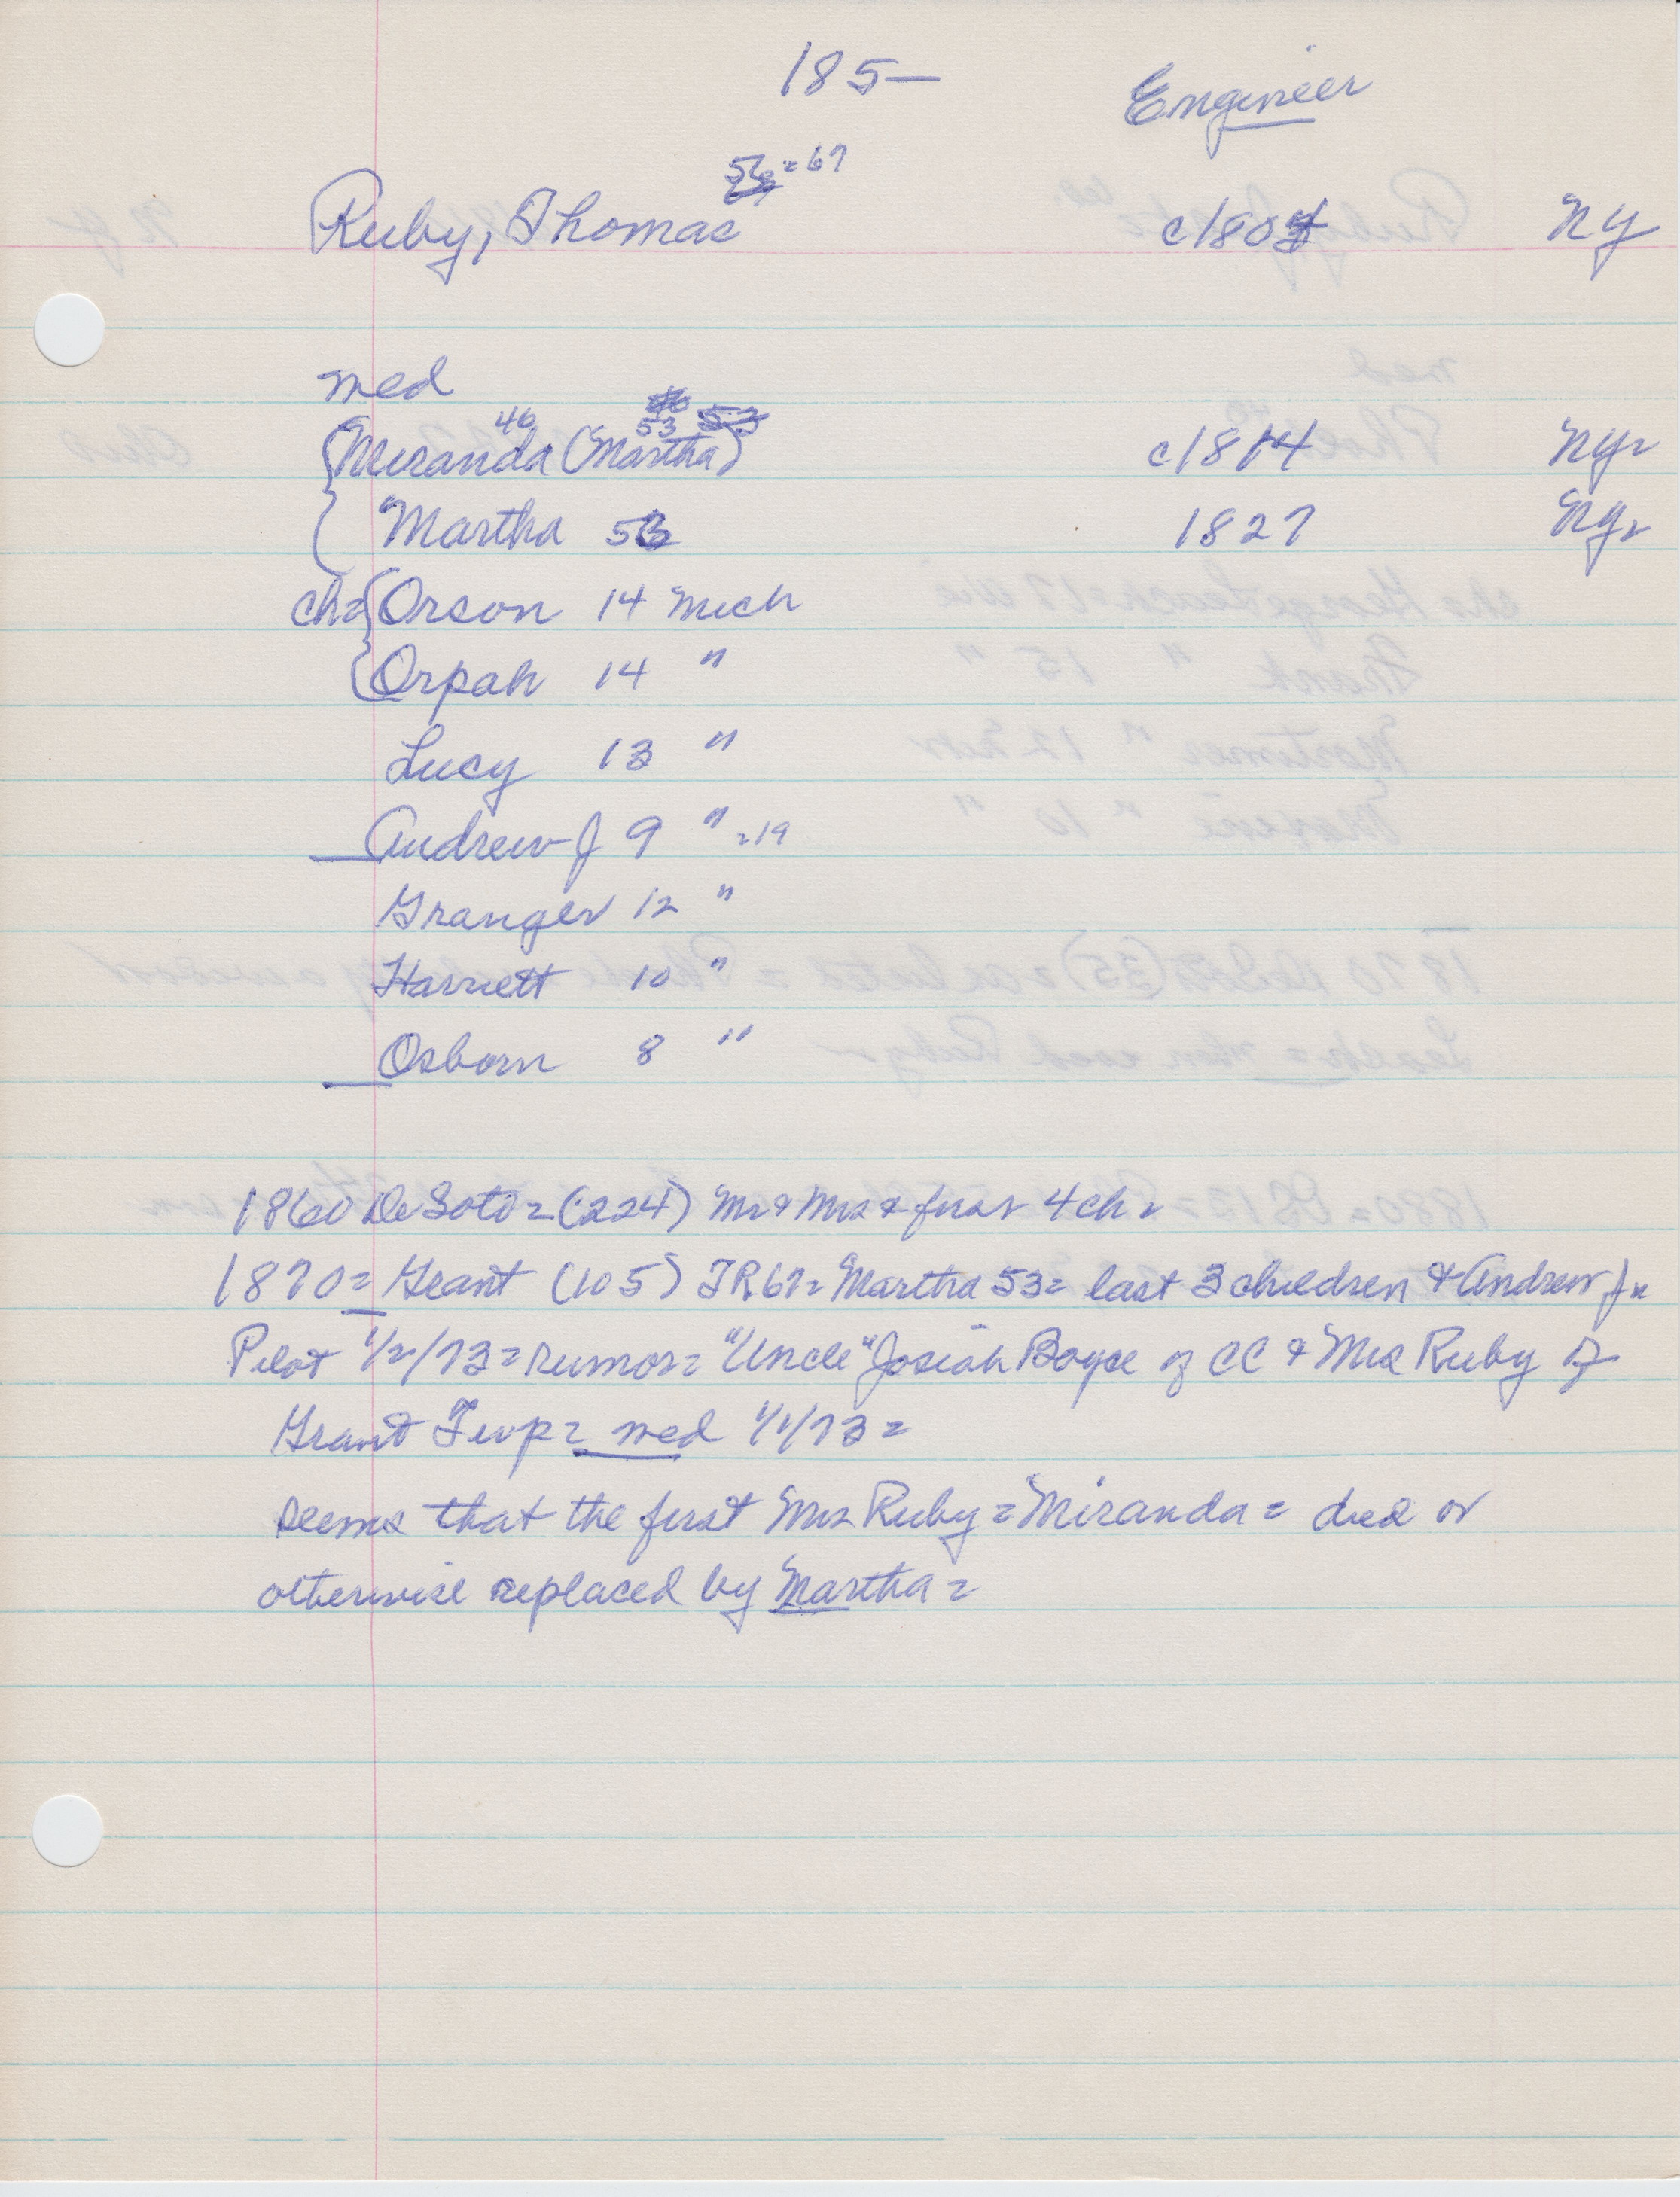 185—
Engineer
= 67
Ruby, Thomas c1803 NY
med
46 53
{Miranda (Martha) c1814 NY=
{ Martha 53 1827 NY=
ch={Orson 14 Mich
{Orpah 14 "
Lucy 13 "
Andrew J 9 " =19
Granger 12 "
Harriett 10 "
Osborn 8 "
1860 DeSoto = (224) Mr & Mrs & first 4 ch =
1870= Grant (105) TR 67= Martha 53= last 3 children & Andrew J=
Pilot 1/2/73= rumor= "Uncle" Josiah Boyce of CC & Mrs Ruby of
Grant Twp= med 1/1/73 =
seems that the first Mrs Ruby = Miranda = died or
otherwise replaced by Martha =